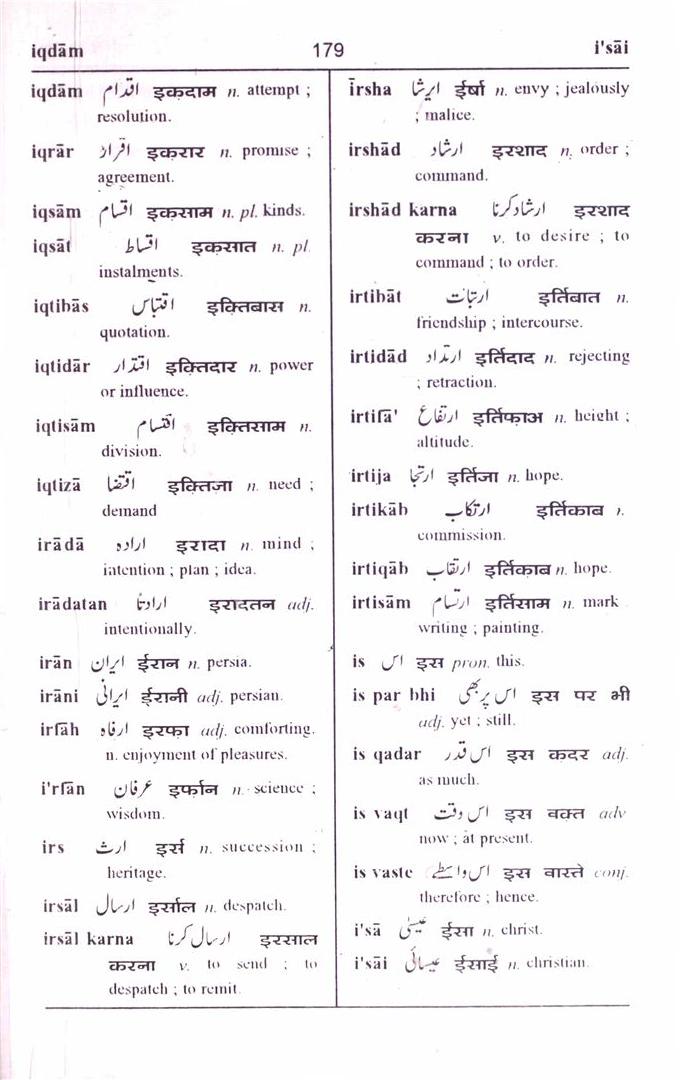 iqdām 179 i'sāi
iqdām اقدام इक़दाम n. attempt ;
resolution.
iqrār اقرار इक़रार n. promise ;
agreement.
iqsām اقسام इक़साम n. pl. kinds.
iqsāt اقساط इक़सात n. pl.
instalments.
iqtibās اقتباس इक़्तिबास n.
quotation.
iqtidār اقتدار इक़्तिदार n. power
or influence.
iqtisām اقتسام इक़्तिसाम n.
division.
iqtizā اقتضا इक़्तिज़ा n. need ;
demand
irādā ارادہ इरादा n. mind ;
intention ; plan ; idea.
irādatan ارادتاً इरादतन adj.
intentionally.
irān ایران ईरान n. persia.
irāni ایرانی ईरानी adj. persian.
irfāh ارفاہ इरफा adj. comforting.
n. enjoyment of pleasures.
i'rfān عرفان इर्फान n. science ;
wisdom.
irs ارث इर्स n. succession ;
heritage.
irsāl ارسال इर्साल n. despatch.
irsāl karna ارسال کرنا इरसाल
करना v. to send ; to
despatch ; to remit.
īrsha ایرشا ईर्षा n. envy ; jealously
; malice.
irshād ارشاد इरशाद n. order ;
command.
irshād karna ارشاد کرنا इरशाद
करना v. to desire ; to
command ; to order.
irtibāt ارتبات इर्तिबात n.
friendship ; intercourse.
irtidād ارتداد इर्तिदाद n. rejecting
; retraction.
irtifā' ارتفاع इर्तिफाअ n. height ;
altitude.
irtija ارتجا इर्तिजा n. hope.
irtikāb ارتکاب इर्तिकाब
commission.
irtiqāb ارتقاب इर्तिक़ाब n. hope.
irtisām ارتسام इर्तिसाम n. mark
writing ; painting.
is اس इस pron. this.
is par bhi اس پر بھی इस पर भी
adj. yet ; still.
is qadar اس قدر इस क़दर adj.
as much.
is vaqt اس وقت इस वक्त adv
now ; at present.
is vaste اس واسطے इस वास्ते conj.
therefore ; hence.
i'sā عیسیٰ ईसा n. christ.
i'sāi عیسائی ईसाई n. christian.